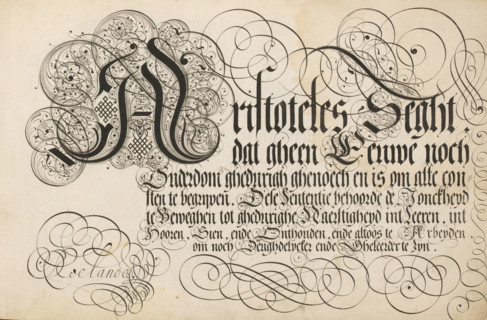 Aristoteles Seght.
dat gheen Eeuwe noch
Ouderdom ghedurigh ghenoech en is om alle con
sten te begrijpen. Dese Sententie behoorde de Jonckheyd
te Beweghen tot ghedurighe Naerstigheyd int Leeren, int
Hooren, Sien, ende Onthouden, ende altoos te Arbeyden
om noch Deughdelycker ende Gheleerder te Zyn.
Roelands